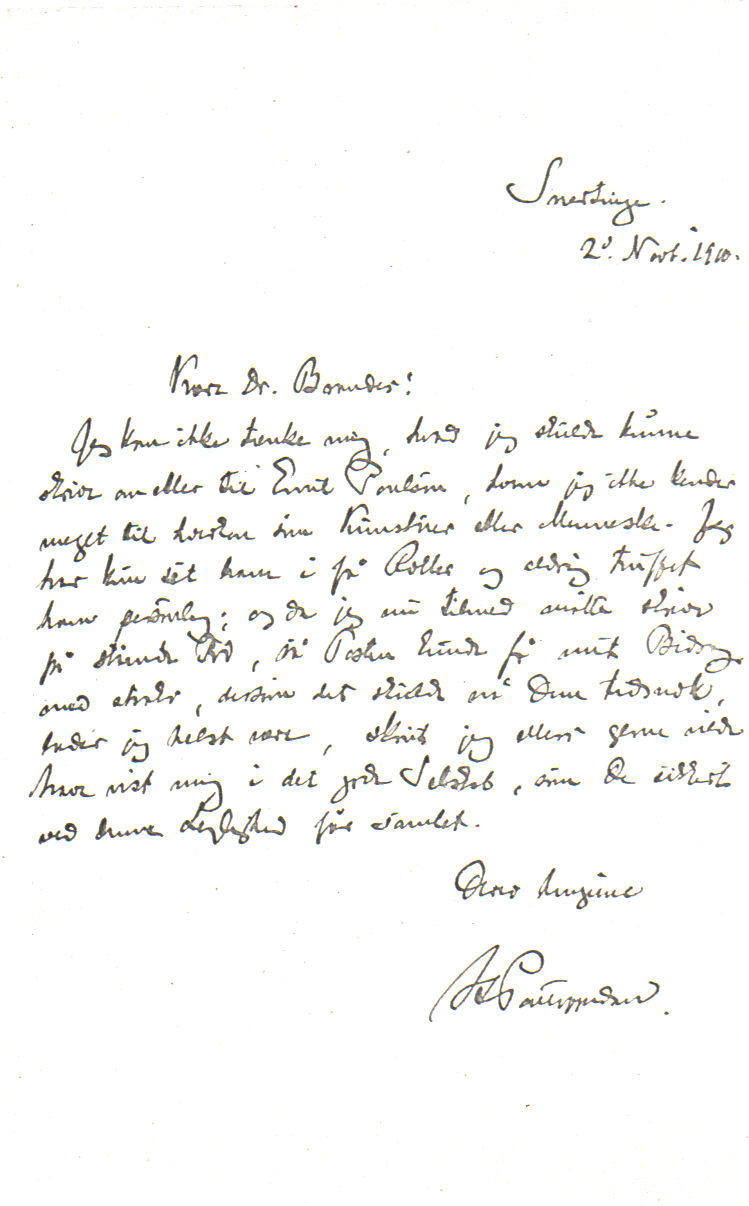 Snertinge.
2' Novb. 1910.
Kære Dr. Brandes!
Jeg kan ikke tænke mig, hvad jeg skulde kunne
skrive om eller til Emil Poulsen, hvem jeg ikke kender
meget til hverken som Kunstner eller Menneske. Jeg
har kun sét ham i få Roller og aldrig truffet
ham personlig; og da jeg nu tilmed måtte skrive
på stående Fod, så Posten kunde få mit Bidrag
med straks, dersom det skulde nå Dem tidsnok,
lader jeg helst være, skønt jeg ellers gerne vilde
have vist mig i det gode Selskab, som De sikkert
ved denne Lejlighed får samlet.
Deres hengivne
H Pontoppidan.